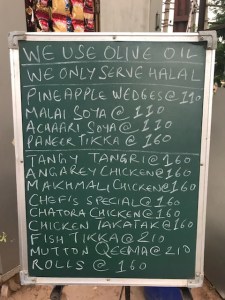 WE USE OLIVE OIL
WE ONLY SERVE HALAL
PINEAPPLE WEDGES@110
MALAI SOYA@ 110
ACHAARI SOYA@ 110
PANEER TIKKA @ 160
TANGY TANGRI@160
ANGAREY CHICKEN@160
MAKHMALI CHICKEN@160
CHEF'S SPECIAL@160
CHATORA CHICKEN@160
CHICKEN TAKATAK@160
FISH TIKKA@210
MUTTON QEEMA@210
ROLLS @ 160